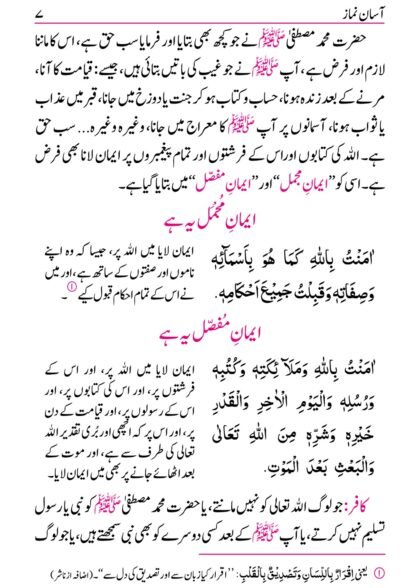 آسان نماز
۷
حضرت محمد مصطفیٰ ﷺ نے جو کچھ بھی بتایا اور فرمایا سب حق ہے، اس کا ماننا
لازم اور فرض ہے، آپ ﷺ نے جو غیب کی باتیں بتائی ہیں، جیسے: قیامت کا آنا،
مرنے کے بعد زندہ ہونا، حساب و کتاب ہو کر جنت یا دوزخ میں جانا، قبر میں عذاب
یا ثواب ہونا، آسمانوں پر آپ ﷺ کا معراج میں جانا، وغیرہ وغیرہ... سب حق
ہے۔ اللہ کی کتابوں اور اس کے فرشتوں اور تمام پیغمبروں پر ایمان لانا بھی فرض
ہے۔ اسی کو ’’ایمانِ مجمل‘‘ اور ’’ایمانِ مفصّل‘‘ میں بتایا گیا ہے۔
ایمانِ مُجمَل یہ ہے
اٰمَنْتُ بِاللّٰهِ کَمَا هُوَ بِاَسْمَآئِهٖ
وَصِفَاتِهٖ وَقَبِلْتُ جَمِیْعَ اَحْکَامِهٖ.
ایمان لایا میں اللہ پر، جیسا کہ وہ اپنے
ناموں اور صفتوں کے ساتھ ہے، اور میں
نے اس کے تمام احکام قبول کیے ①۔
ایمانِ مفصّل یہ ہے
اٰمَنْتُ بِاللّٰهِ وَمَلَآئِکَتِهٖ وَکُتُبِهٖ
وَرُسُلِهٖ وَالْیَوْمِ الْاٰخِرِ وَالْقَدْرِ
خَیْرِهٖ وَشَرِّهٖ مِنَ اللّٰهِ تَعَالٰی
وَالْبَعْثِ بَعْدَ الْمَوْتِ.
ایمان لایا میں اللہ پر، اور اس کے
فرشتوں پر، اور اس کی کتابوں پر، اور
اس کے رسولوں پر، اور قیامت کے دن
پر، اور اس پر کہ اچھی اور بُری تقدیر اللہ
تعالی کی طرف سے ہے، اور موت کے
بعد اٹھائے جانے پر بھی میں ایمان لایا۔
کافر: جو لوگ اللہ تعالی کو نہیں مانتے، یا حضرت محمد مصطفیٰ ﷺ کو نبی یا رسول
تسلیم نہیں کرتے، یا آپ ﷺ کے بعد کسی دوسرے کو بھی نبی سمجھتے ہیں، یا جو لوگ
① یعنی اِقْرَارٌ بِاللِّسَانِ وَتَصْدِیْقٌ بِالْقَلْبِ: ’’اقرار کیا زبان سے اور تصدیق کی دل سے‘‘۔ (اضافہ از ناشر)